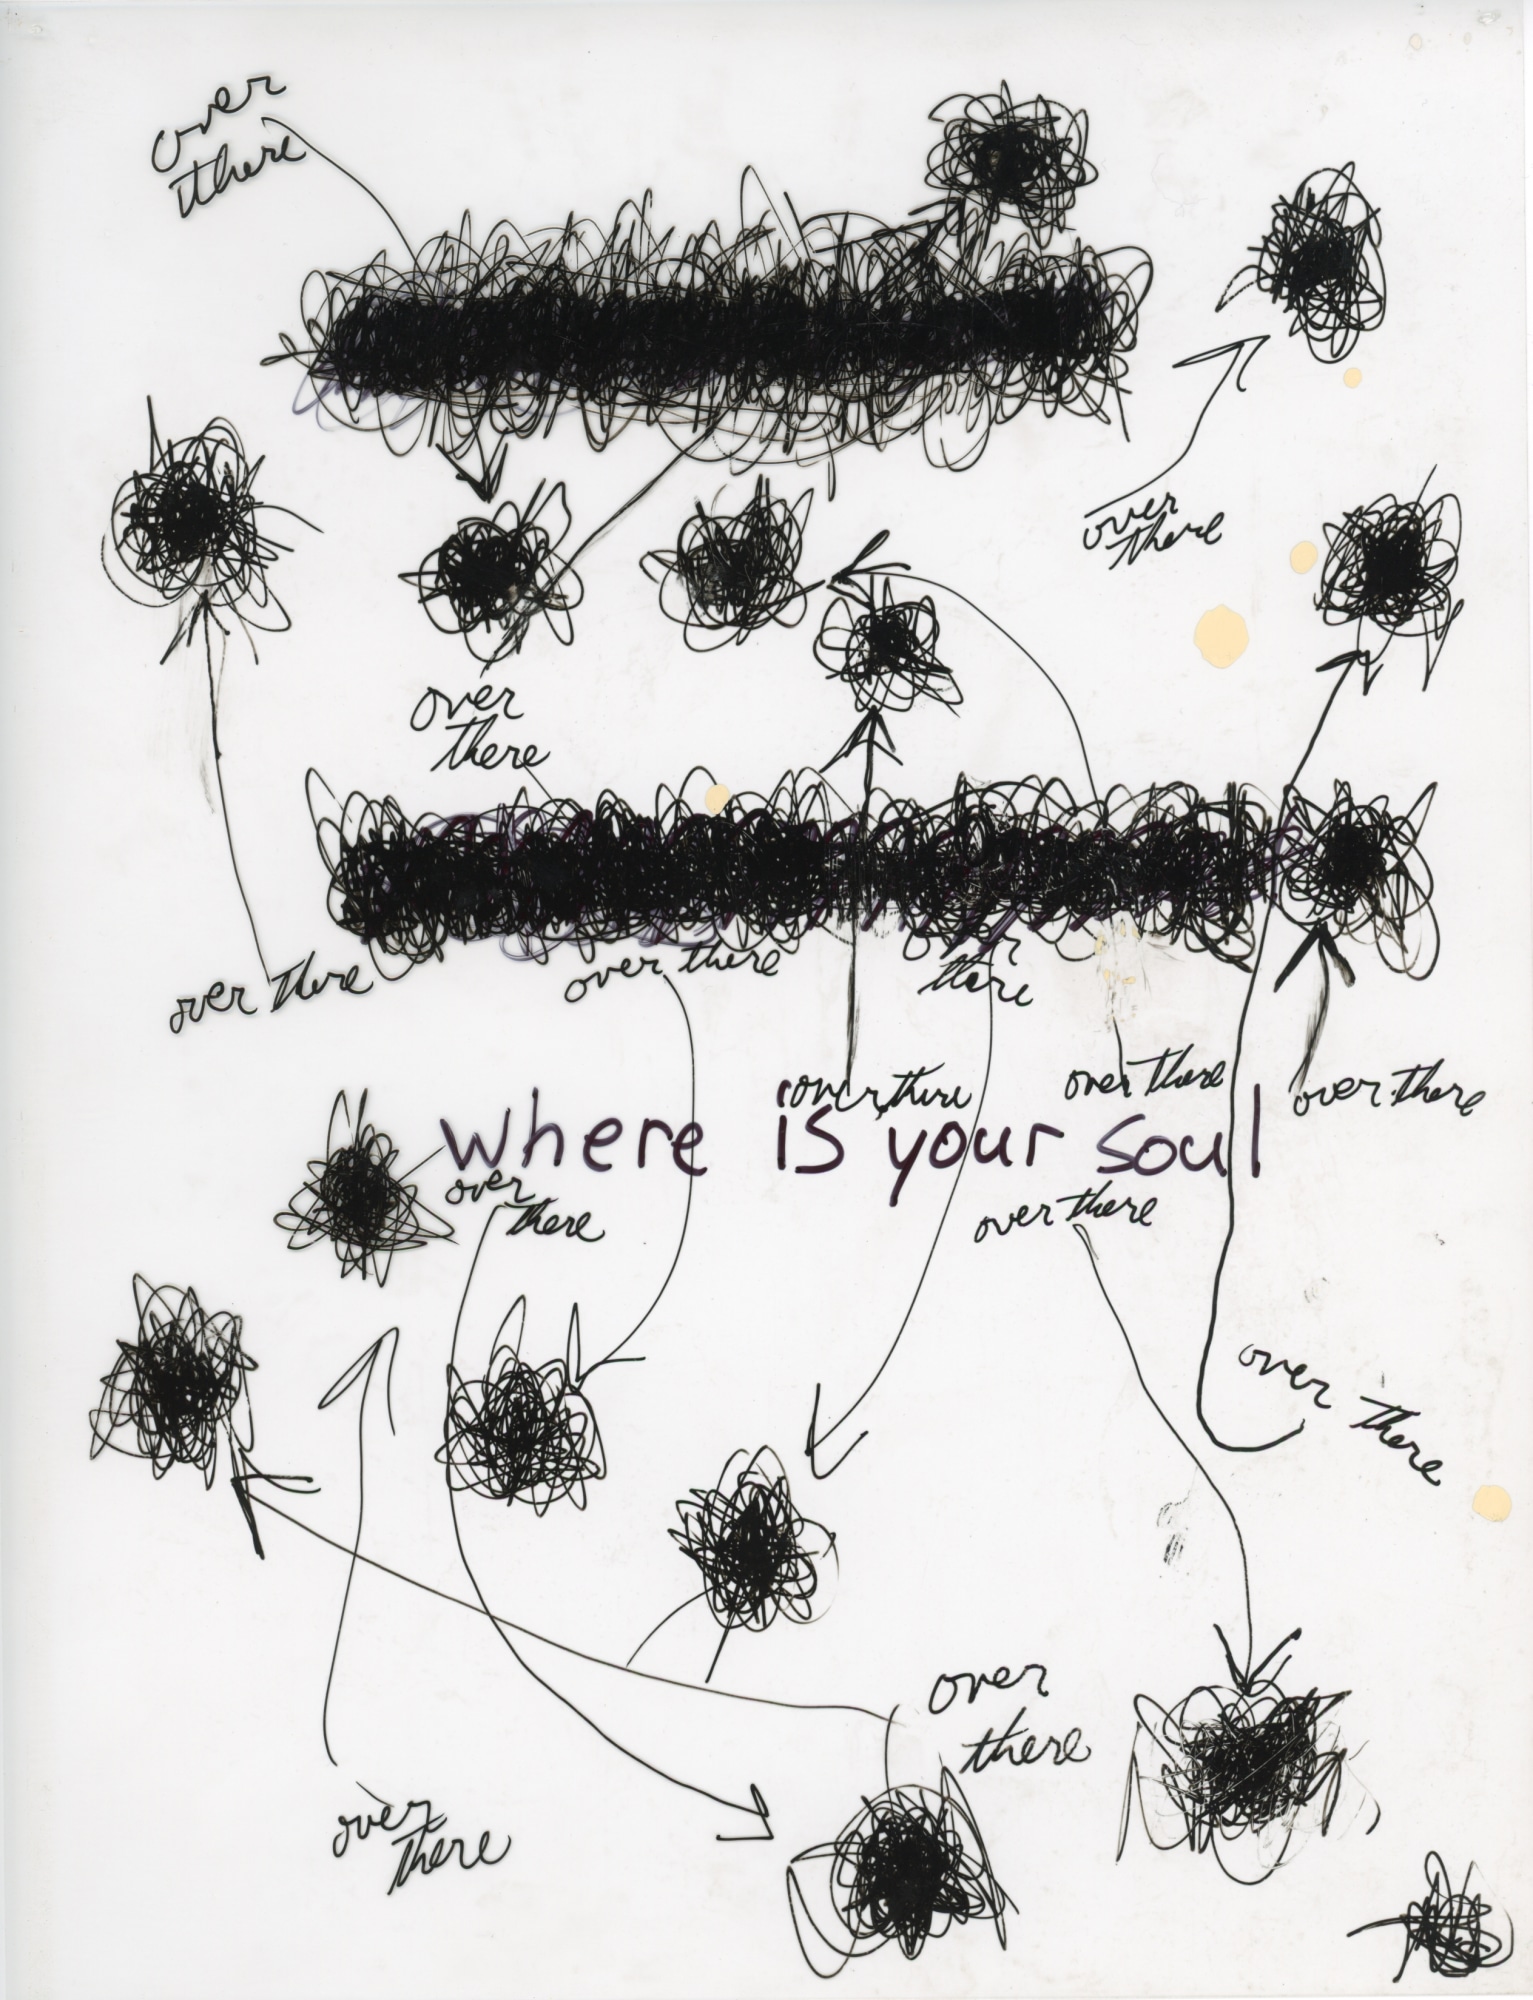 over
there
over
there
over
there
over there
over there
there
over there
over there
over there
where is your soul
over
there
over there
over there
over
there
over
there